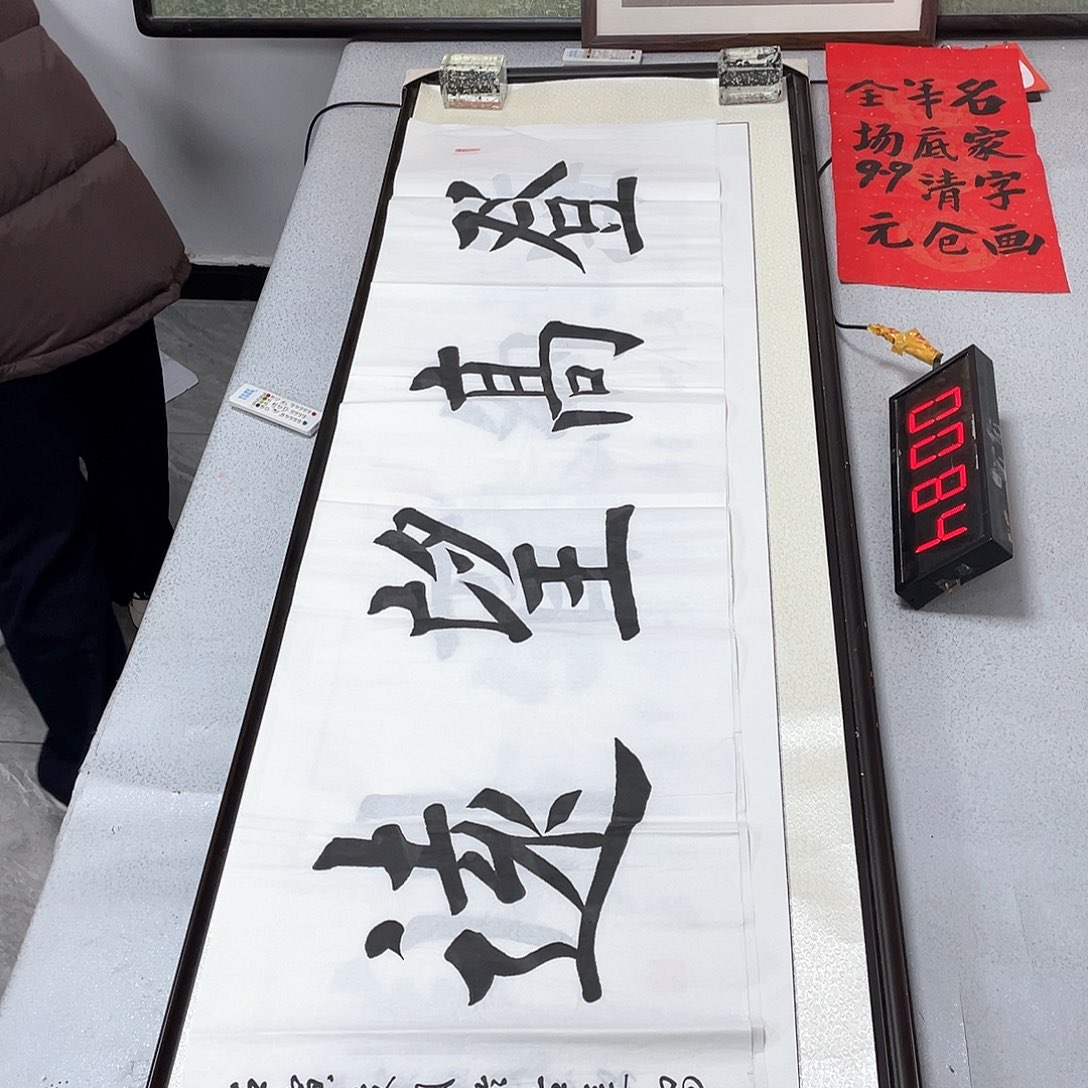 登高望遠
名家字画
年底清仓
全场9.9元
0084